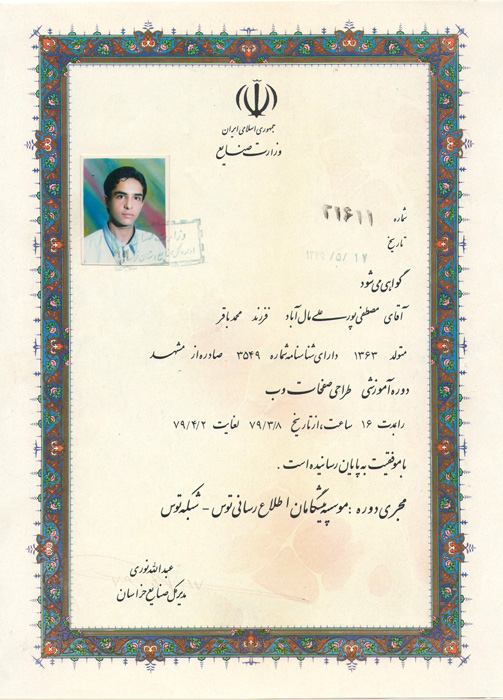 جمهوری اسلامی ایران
وزارت صنایع
شماره ۲۱۶۱۱
تاریخ ۱۳۷۹/۵/۱۷
گواهی می شود
آقای مصطفی پورعلی مال آباد فرزند محمد باقر
متولد ۱۳۶۳ دارای شناسنامه شماره ۳۵۴۹ صادره از مشهد
دوره آموزشی طراحی صفحات وب
را بمدت ۱۶ ساعت، از تاریخ ۷۹/۳/۸ لغایت ۷۹/۴/۲
با موفقیت به پایان رسانیده است .
مجری دوره : موسسه پیشگامان اطلاع رسانی توس - شبکه توس
عبدالله نوری
مدیر کل صنایع خراسان